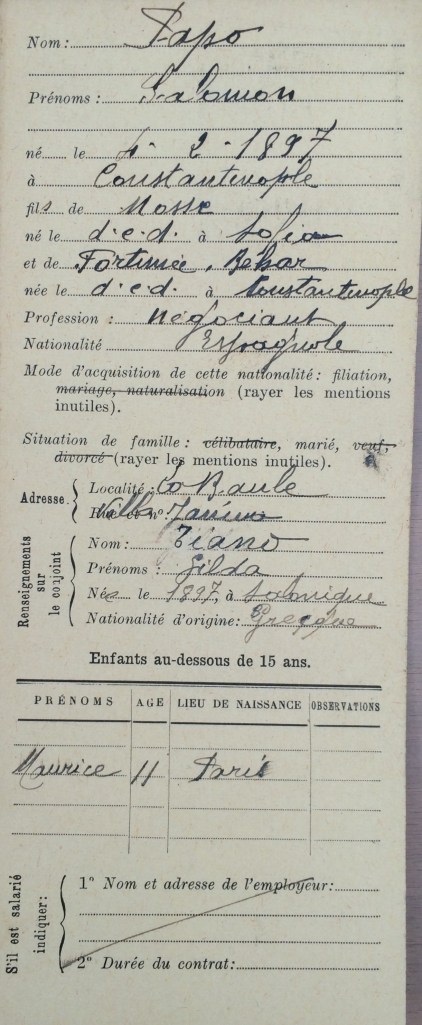 Nom: Papo
Prénoms: Salomon
né le 4 - 2 - 1897
à Constantinople
fils de Mosse
né le d.c.d. à Sofia
et de Fortunée, Behar
née le d.c.d. à Constantinople
Profession: Négociant
Nationalité Espagnole
Mode d'acquisition de cette nationalité: filiation,
mariage, naturalisation (rayer les mentions
inutiles).
Situation de famille: célibataire, marié, veuf,
divorcé (rayer les mentions inutiles).
Adresse. Localité: La Baule
Rue et n°: Villa Janine
Renseignements sur le conjoint
Nom: Tiano
Prénoms: Gilda
Née le 1897, à Salonique
Nationalité d'origine: Grecque
Enfants au-dessous de 15 ans.
PRÉNOMS AGE LIEU DE NAISSANCE OBSERVATIONS
Maurice 11 Paris
S'il est salarié indiquer:
1° Nom et adresse de l'employeur:
2° Durée du contrat: